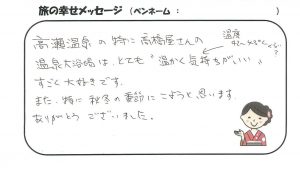 旅の幸せメッセージ (ペンネーム： )
高瀬温泉の特に高橋屋さんの
温泉大浴場は、とても“温かく気持ちがいい”
すごく大好きです。
また、特に秋冬の季節にこようと思います。
ありがとうございました。
温度